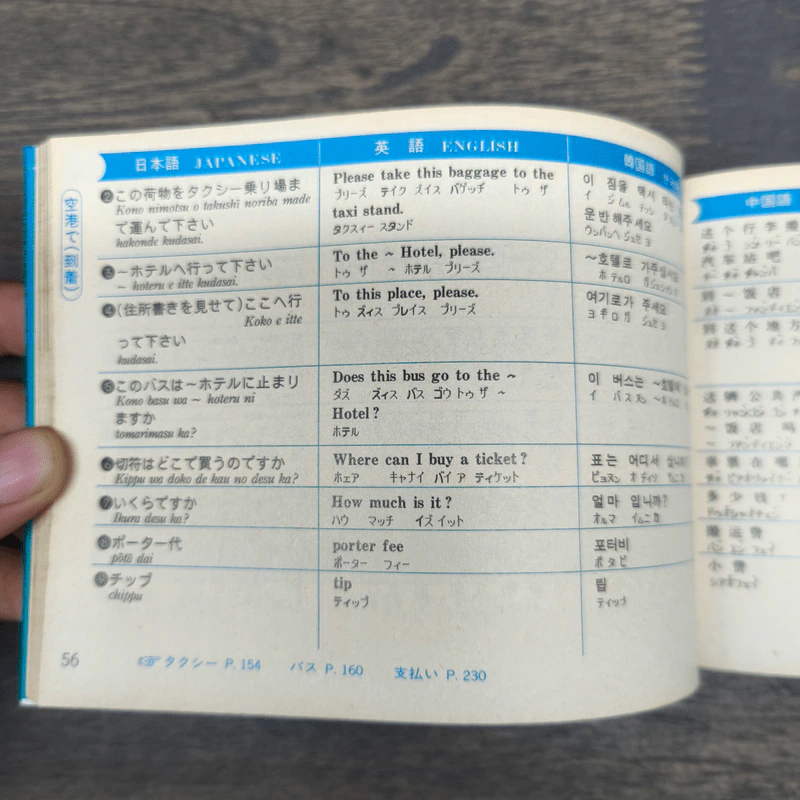 空港で(到着)
日本語 JAPANESE
英語 ENGLISH
韓国語
中国語
❷この荷物をタクシー乗り場ま
Kono nimotsu o takushi noriba made
て運んで下さい
hakonde kudasai.
Please take this baggage to the
プリーズ テイク ズイス バゲッヂ トゥ ザ
taxi stand.
タクスィー スタンド
이 짐을 택시
운반해주세요
ウンバンヘ ジュセヨ
❸～ホテルへ行って下さい
～ hoteru e itte kudasai.
To the ～ Hotel, please.
トゥ ザ ～ ホテル プリーズ
～호텔로 가주십시오
❹(住所書きを見せて)ここへ行
Koko e itte
って下さい
kudasai.
To this place, please.
トゥ ズィス プレイス プリーズ
여기로가 주세요
ヨギロガ ジュセヨ
❺このバスは～ホテルに止まり
Kono basu wa ～ hoteru ni
ますか
tomarimasu ka?
Does this bus go to the ～
ダズ ズィス バス ゴウ トゥ ザ ～
Hotel?
ホテル
이 버스는 ～호텔에
❻切符はどこで買うのですか
Kippu wa doko de kau no desu ka?
Where can I buy a ticket?
ホェア キャナイ バイ ア ティケット
표는 어디서 삽니까
❼いくらですか
Ikura desu ka?
How much is it?
ハウ マッチ イズ イット
얼마 입니까?
オルマ イムニカ
❽ポーター代
pōtā dai
porter fee
ポーター フィー
포터비
ポタビ
❾チップ
chippu
tip
ティップ
팁
ティップ
这个行李搬
汽车站吧
到一饭店
到这个地方
这辆公共汽
～饭店吗
多少钱
搬运费
小费
56
☞タクシー P. 154 バス P. 160 支払い P. 230